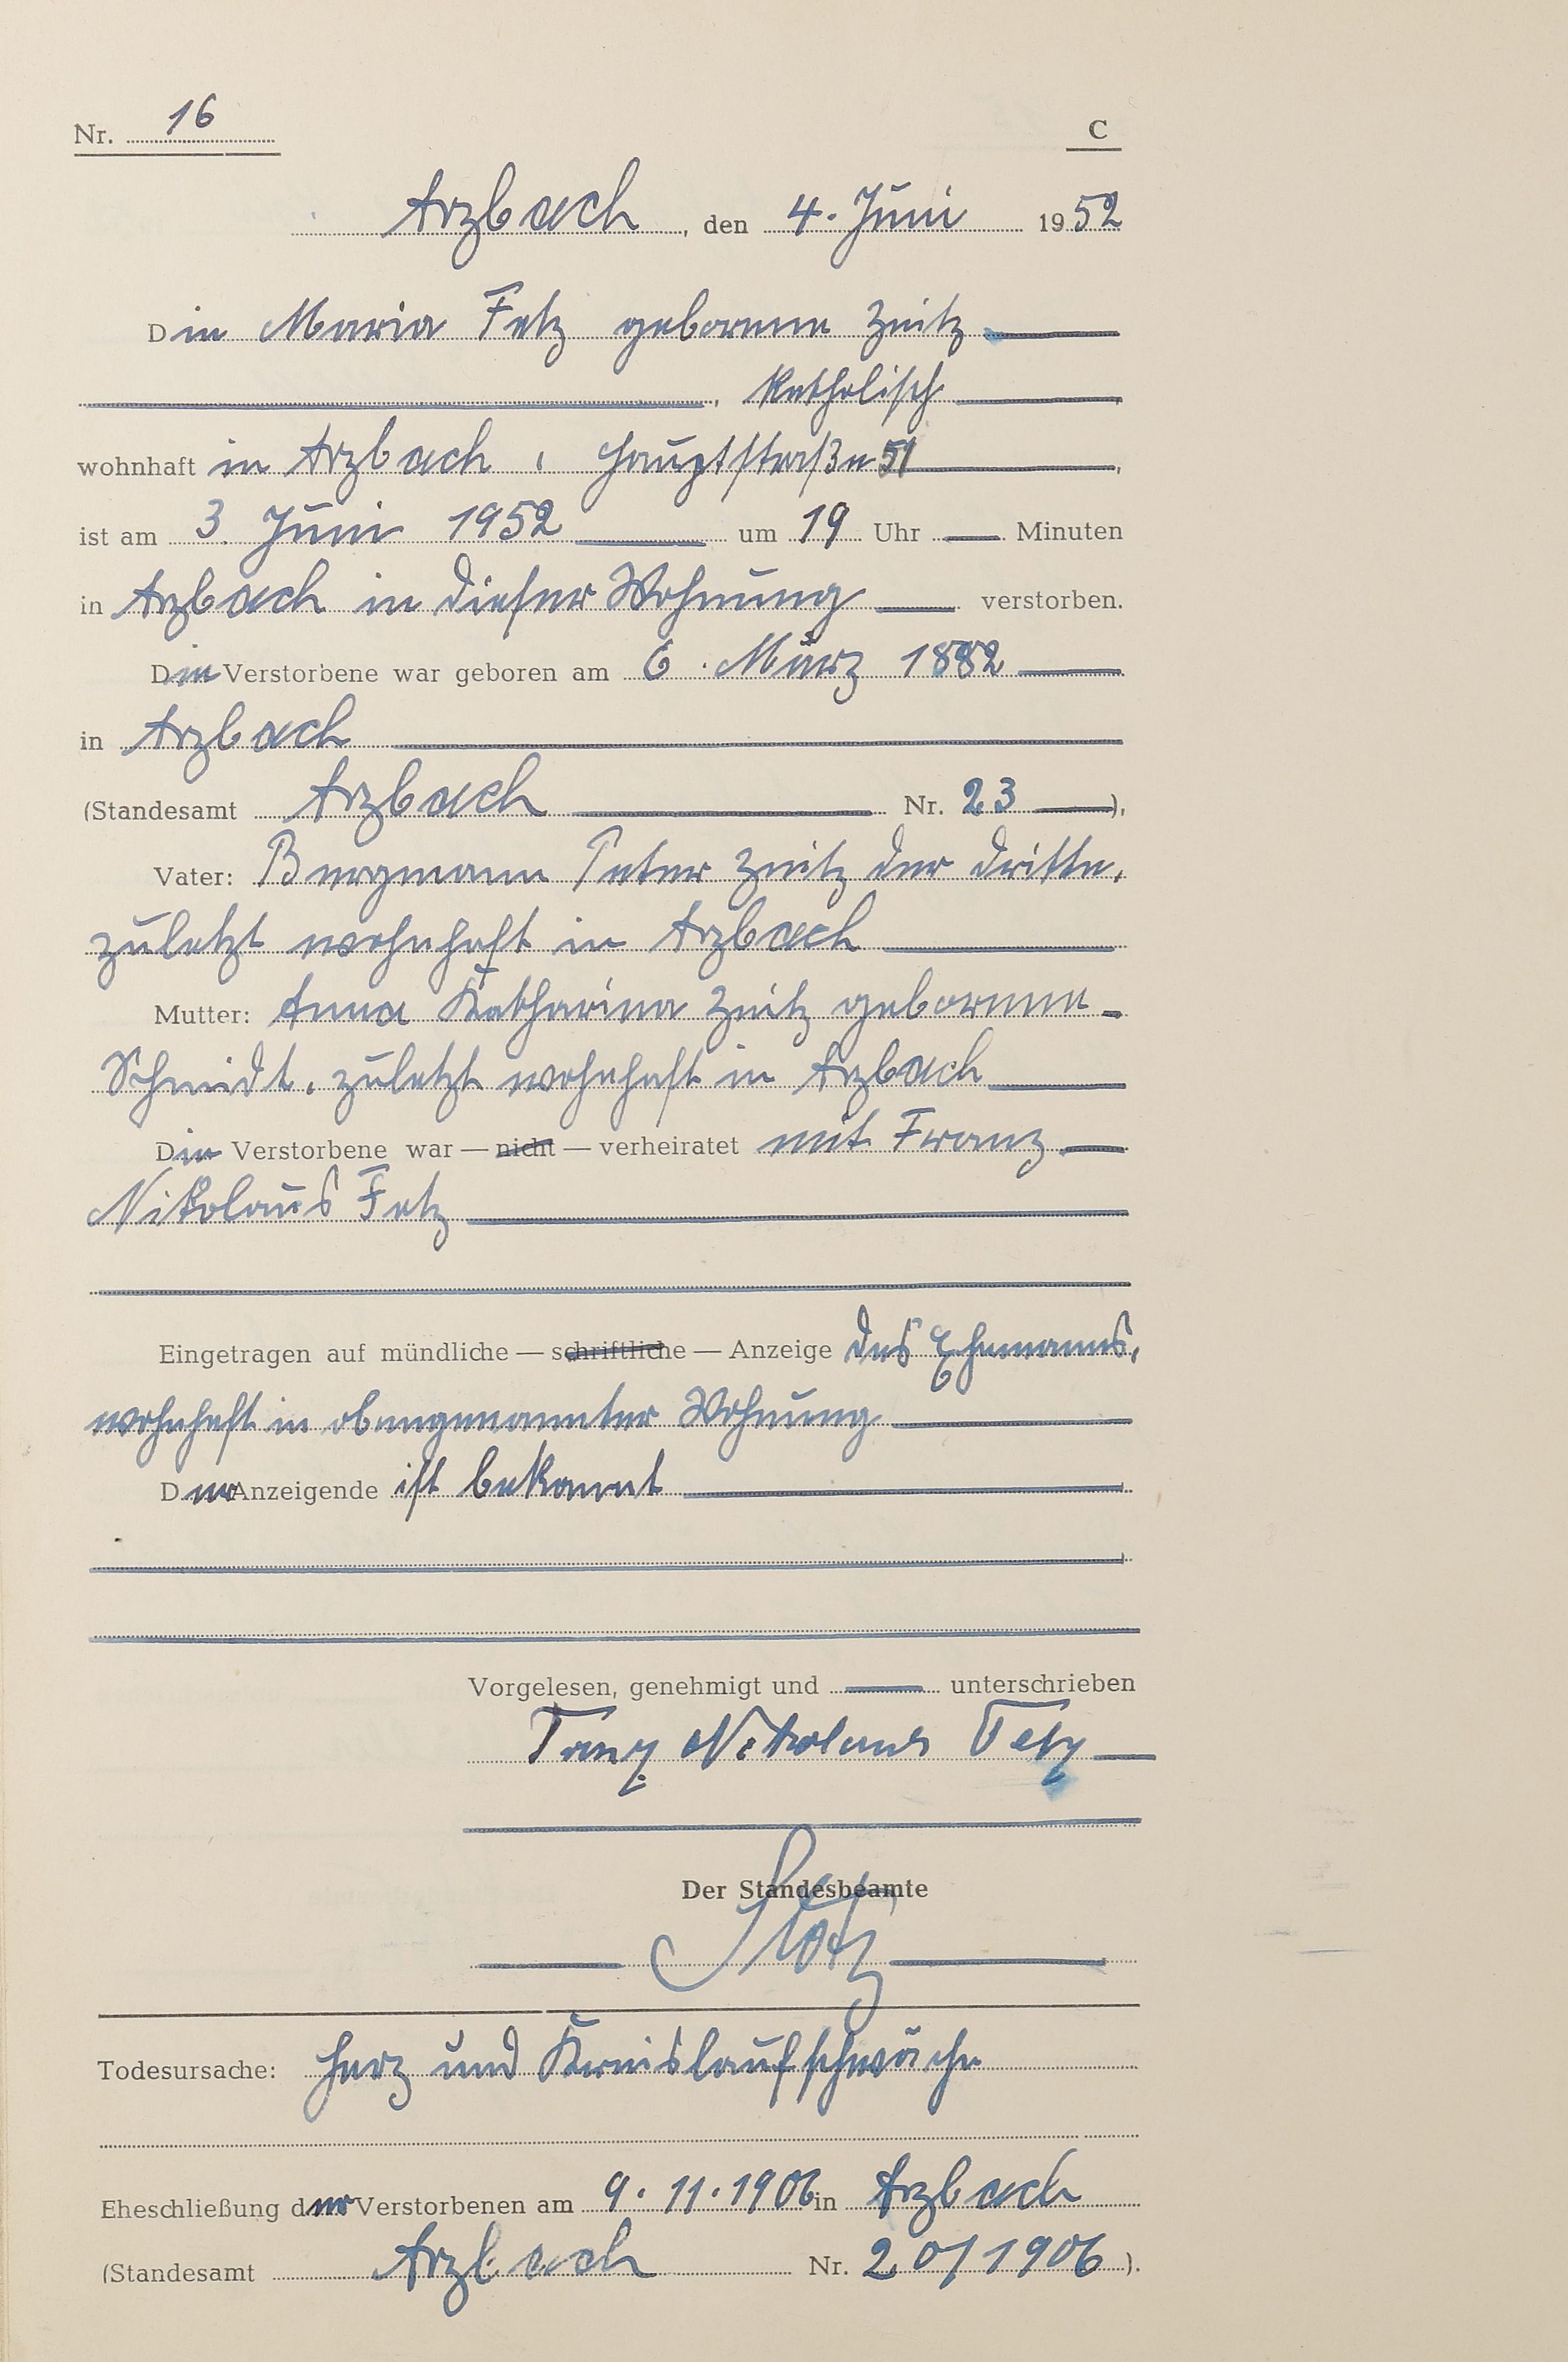 Nr. 16
C
Arzbach, den 4. Juni 1952
Die Maria Fetz geborene Zeitz
, katholisch
wohnhaft in Arzbach, Hauptstraße 51,
ist am 3. Juni 1952 um 19 Uhr — Minuten
in Arzbach in dieser Wohnung verstorben.
Die Verstorbene war geboren am 6. März 1882
in Arzbach
(Standesamt Arzbach Nr. 23 —),
Vater: Bergmann Peter Zeitz der dritte,
zuletzt wohnhaft in Arzbach
Mutter: Anna Katharina Zeitz geborene
Schmidt, zuletzt wohnhaft in Arzbach
Die Verstorbene war — nicht — verheiratet mit Franz
Nikolaus Fetz
Eingetragen auf mündliche — schriftliche — Anzeige des Ehemanns,
wohnhaft in obengenannter Wohnung
Der Anzeigende ist bekannt
Vorgelesen, genehmigt und — unterschrieben
Franz Nikolaus Fetz
Der Standesbeamte
Todesursache: Herz und Kreislaufschwäche
Eheschließung der Verstorbenen am 9.11.1906 in Arzbach
(Standesamt Arzbach Nr. 20/1906).